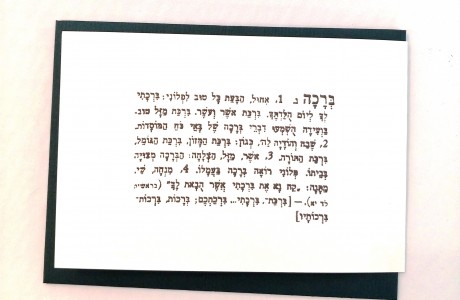 בְּרָכָה נ 1. אִחוּל, הַבָּעַת כָּל טוּב לִפְלוֹנִי: בִּרְכָתִי
לְךָ לְיוֹם הֻלַּדְתְּךָ. בִּרְכַּת אֹשֶׁר וָעֹשֶׁר. בִּרְכַּת מַזָּל טוֹב.
בַּוְּעִידָה הֻשְׁמְעוּ דִּבְרֵי בְּרָכָה שֶׁל בָּאֵי כֹּחַ הַמּוֹסָדוֹת.
2. שֶׁבַח וְהוֹדָיָה לַה', כְּגוֹן: בִּרְכַּת הַמָּזוֹן, בִּרְכַּת הַגּוֹמֵל,
בִּרְכַּת הַתּוֹרָה. 3. אֹשֶׁר, מַזָּל, הַצְלָחָה: הַבְּרָכָה מְצוּיָה
בְּבֵיתוֹ. פְּלוֹנִי רוֹאֶה בְּרָכָה בַּעֲמָלוֹ. 4. מִנְחָה, שַׁי,
מַתָּנָה: „קַח נָא אֶת בִּרְכָתִי אֲשֶׁר הֻבָאת לָךְ" (בראשית
לג יא). — [בִּרְכַּת-, בִּרְכָתִי... בִּרְכַתְכֶם; בְּרָכוֹת, בִּרְכוֹת-
בִּרְכוֹתָיו]